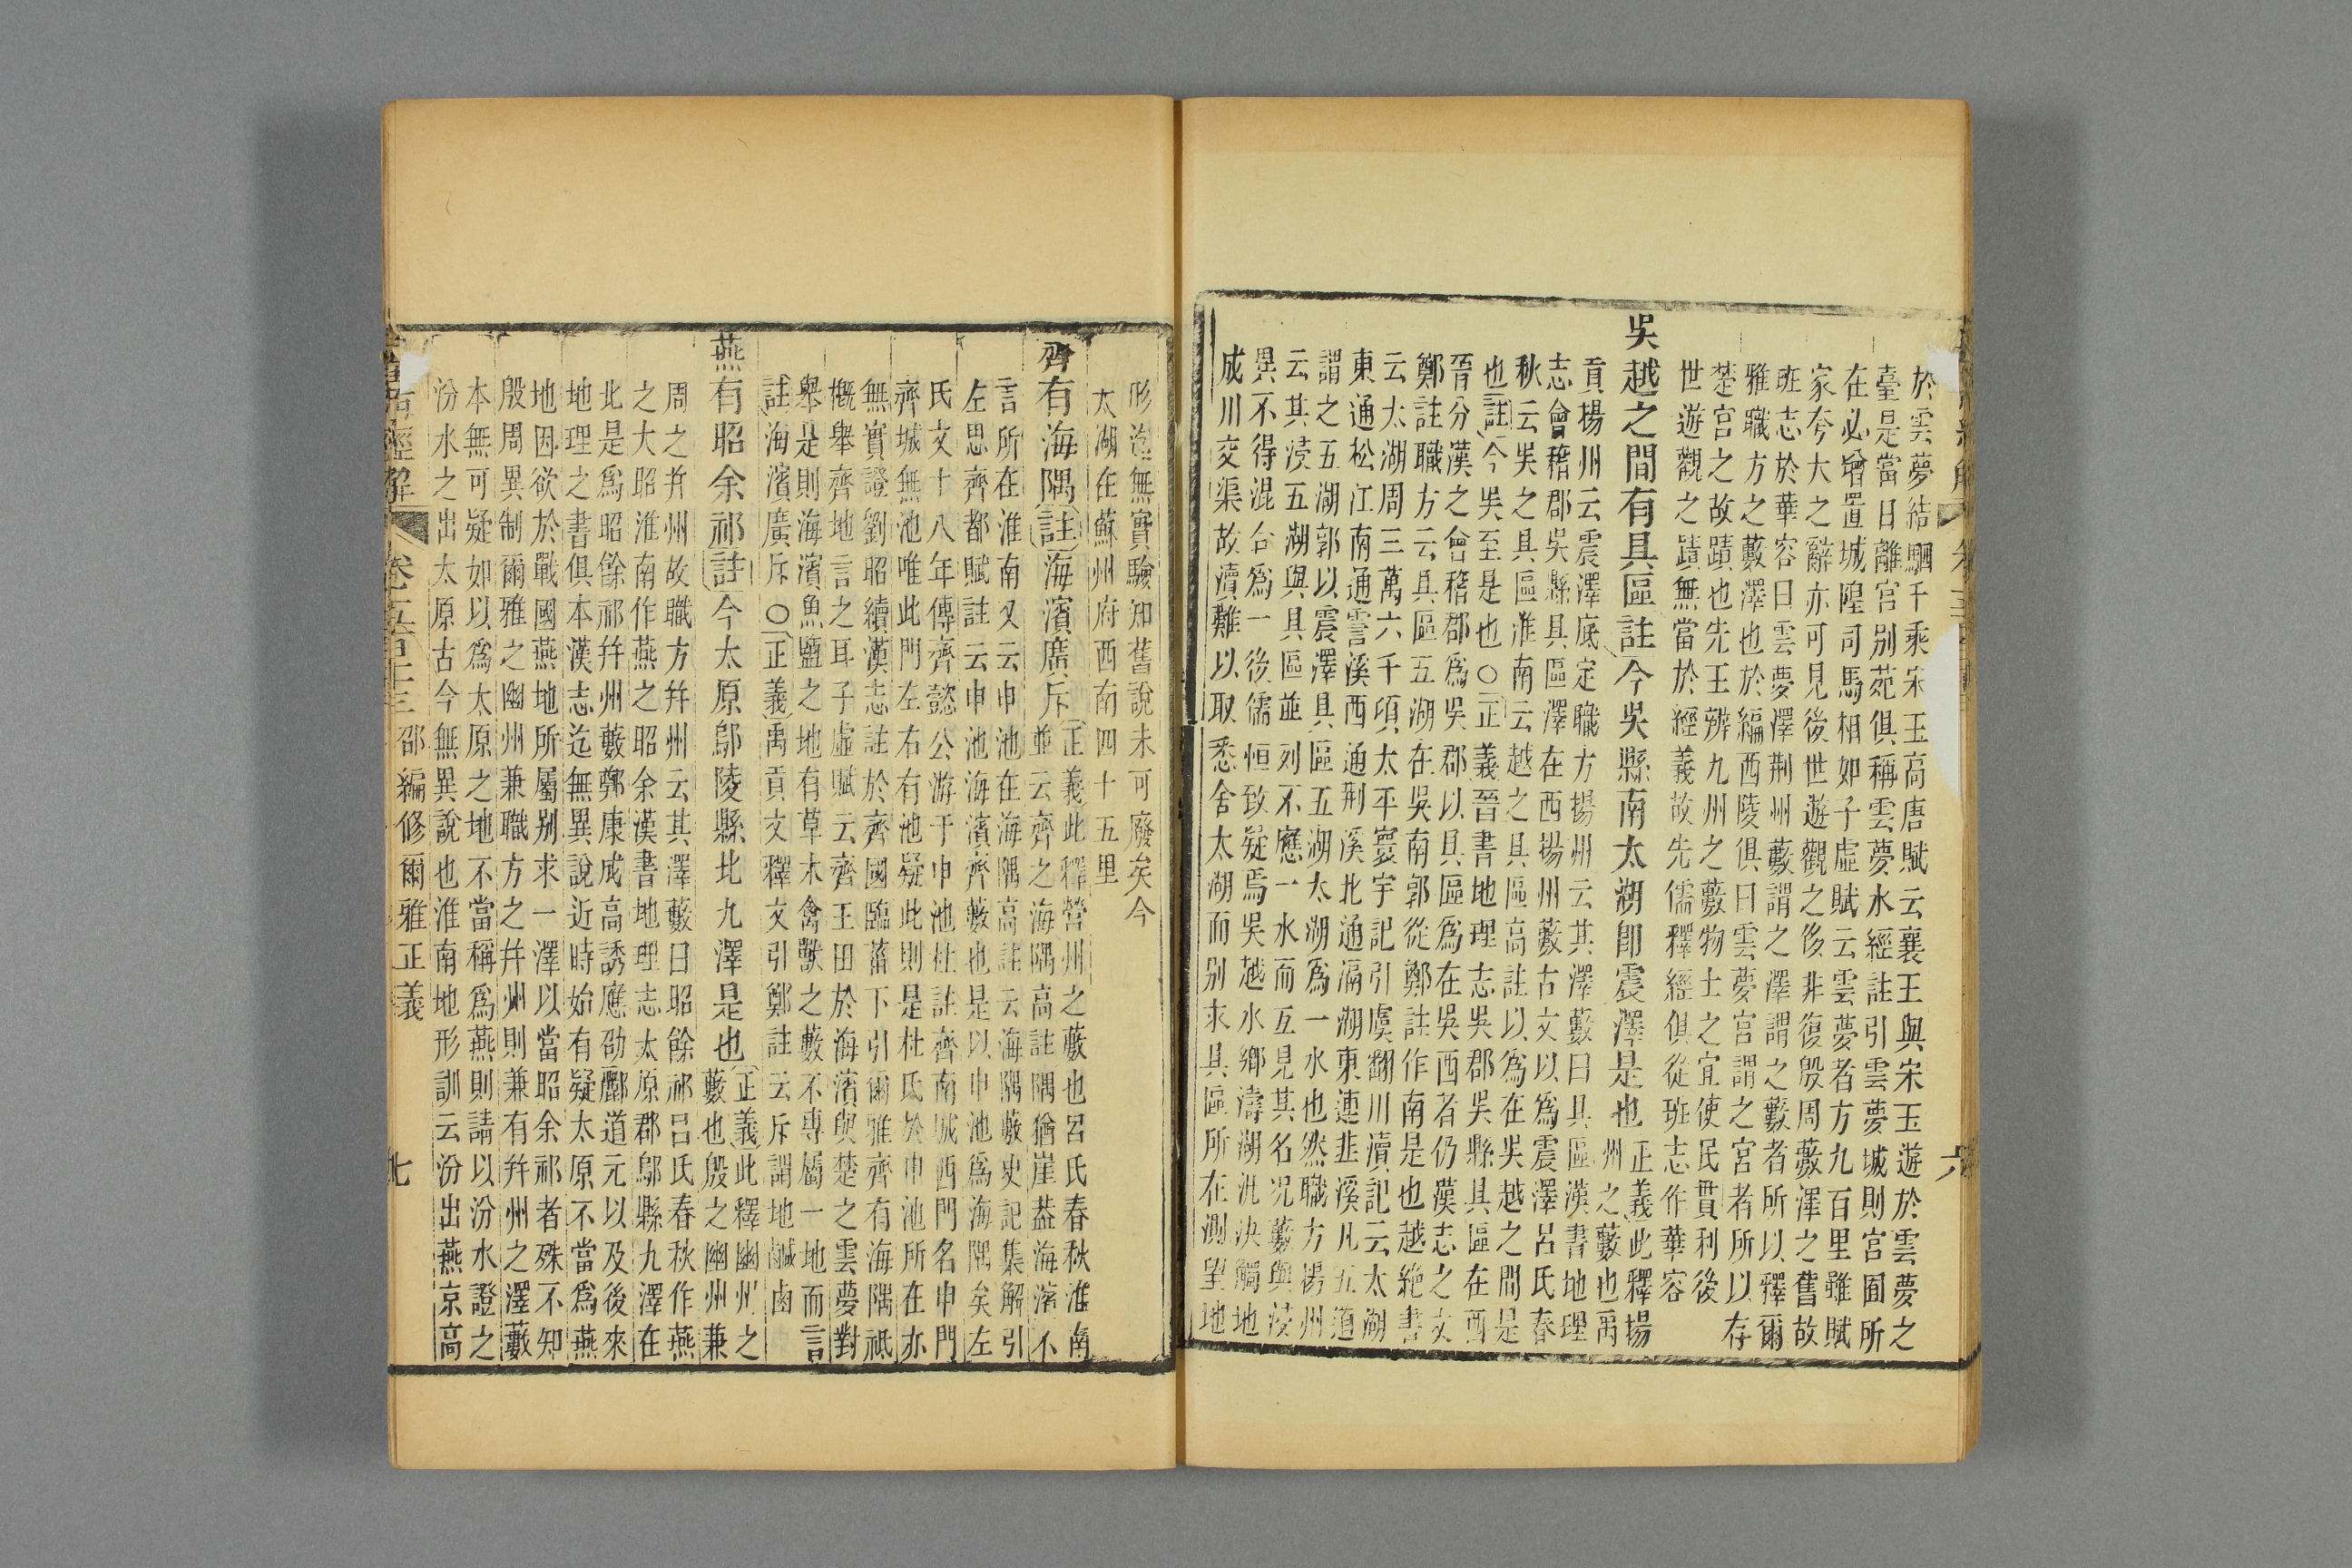 於雲夢結駟千乘宋玉高唐賦云襄王與宋玉遊於雲夢之
臺是當日離宮別苑俱稱雲夢水經註引雲夢城則宮囿所
在必曾置城隍司馬相如子虛賦云雲夢者方九百里雖賦
家夸大之辭亦可見後世遊觀之侈非復殷周藪澤之舊故
班志於華容曰雲夢澤荆州藪謂之澤謂之藪者所以釋爾
雅職方之藪澤也於編西陵俱曰雲夢宮謂之宮者所以存
楚宮之故蹟也先王辨九州之藪物土之宜使民貫利後
世遊觀之蹟無當於經義故先儒釋經俱從班志作華容
吳越之間有具區註今吳縣南太湖卽震澤是也正義此釋揚
州之藪也禹
貢楊州云震澤底定職方揚州云其澤藪曰具區漢書地理
志會稽郡吳縣具區澤在西揚州藪古文以爲震澤呂氏春
秋云吳之具區淮南云越之具區高註以爲在吳越之間是
也註今吳至是也○正義晉書地理志吳郡吳縣具區在西
晉分漢之會稽郡爲吳郡以具區爲在吳西者仍漢志之文
鄭註職方云具區五湖在吳南郭從鄭註作南是也越絶書
云太湖周三萬六千頃太平寰宇記引虞翻川瀆記云太湖
東通松江南通霅溪西通荆溪北通滆湖東連韭溪凡五道
謂之五湖郭以震澤具區五湖太湖爲一水也然職方揚州
云其浸五湖與具區並列不應一水而互見其名況藪與浸
異不得混合爲一後儒恒致疑焉吳越水鄉濤湖汎決觸地
成川交渠故瀆難以取悉舍太湖而别求具區所在測望地
形迄無實驗知舊說未可廢矣今
太湖在蘇州府西南四十五里
齊有海隅註海濱廣斥正義此釋營州之藪也呂氏春秋淮南
並云齊之海隅高註隅猶崖葢海濱不
言所在淮南又云申池在海隅高註云海隅藪史記集解引
左思齊都賦註云申池海濱齊藪也是以申池爲海隅矣左
氏文十八年傳齊懿公游于申池杜註齊南城西門名申門
齊城無池唯此門左右有池疑此則是杜氏於申池所在亦
無實證劉昭續漢志註於齊國臨菑下引爾雅齊有海隅祗
槪舉齊地言之耳子虛賦云齊王田於海濱與楚之雲夢對
舉是則海濱魚鹽之地有草木禽獸之藪不專屬一地而言
註海濱廣斥○正義禹貢文釋文引鄭註云斥謂地鹹鹵
燕有昭余祁註今太原鄔陵縣北九澤是也正義此釋幽州之
藪也殷之幽州兼
周之幷州故職方幷州云其澤藪曰昭餘祁呂氏春秋作燕
之大昭淮南作燕之昭余漢書地理志太原郡鄔縣九澤在
北是爲昭餘祁幷州藪鄭康成高誘應劭酈道元以及後來
地理之書俱本漢志迄無異說近時始有疑太原不當爲燕
地因欲於戰國燕地所屬別求一澤以當昭余祁者殊不知
殷周異制爾雅之幽州兼職方之幷州則兼有幷州之澤藪
本無可疑如以爲太原之地不當稱爲燕則請以汾水證之
汾水之出太原古今無異說也淮南地形訓云汾出燕京高
卷五百十三 邵編修爾雅正義 七